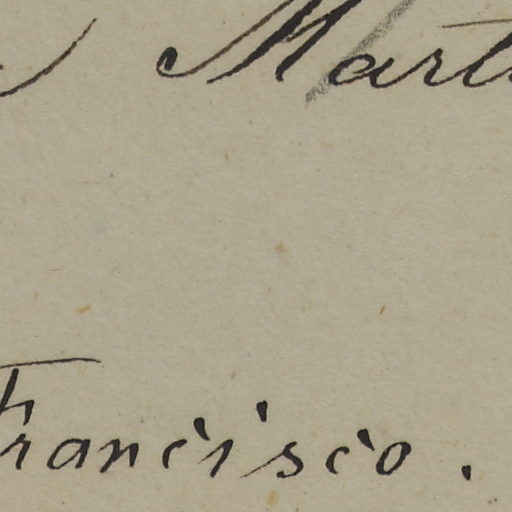 Mart
Francisco.